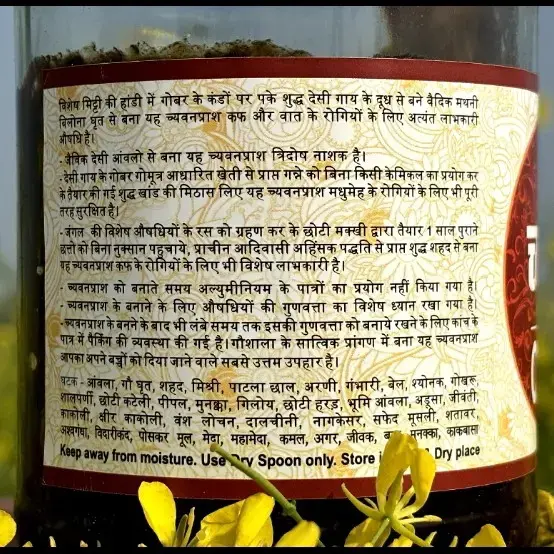 विशेष मिट्टी की हांडी में गोबर के कंडों पर पके शुद्ध देसी गाय के दूध से बने वैदिक मथनी
बिलोना घृत से बना यह च्यवनप्राश कफ और वात के रोगियों के लिए अत्यंत लाभकारी
औषधि है।
- जैविक देसी आंवलो से बना यह च्यवनप्राश त्रिदोष नाशक है।
- देसी गाय के गोबर गोमूत्र आधारित खेती से प्राप्त गन्ने को बिना किसी केमिकल का प्रयोग कर
के तैयार की गई शुद्ध खांड की मिठास लिए यह च्यवनप्राश मधुमेह के रोगियों के लिए भी पूरी
तरह सुरक्षित है।
- जंगल की विशेष औषधियों के रस को ग्रहण कर के छोटी मक्खी द्वारा तैयार 1 साल पुराने
छत्तो को बिना नुक्सान पहुचाये, प्राचीन आदिवासी अहिंसक पद्धति से प्राप्त शुद्ध शहद से बना
यह च्यवनप्राश कफ के रोगियों के लिए भी विशेष लाभकारी है।
- च्यवनप्राश को बनाते समय अल्युमीनियम के पात्रों का प्रयोग नहीं किया गया है।
- च्यवनप्राश के बनाने के लिए औषधियों की गुणवत्ता का विशेष ध्यान रखा गया है।
- च्यवनप्राश के बनने के बाद भी लंबे समय तक इसकी गुणवत्ता को बनाये रखने के लिए कांच के
पात्र में पैकिंग की व्यवस्था की गई है। गौशाला के सात्विक प्रांगण में बना यह च्यवनप्राश
आपका अपने बच्चों को दिया जाने वाले सबसे उत्तम उपहार है।
घटक - आंवला, गौ घृत, शहद, मिश्री, पाटला छाल, अरणी, गंभारी, बेल, श्योनक, गोखरू,
शालपर्णी, छोटी कटेली, पीपल, मुनक्का, गिलोय, छोटी हरड़, भूमि आंवला, अडूसा, जीवंती,
काकोली, क्षीर काकोली, वंश लोचन, दालचीनी, नागकेसर, सफेद मूसली, शतावर,
अश्वगंधा, विदारीकंद, पोसकर मूल, मेदा, महामेदा, कमल, अगर, जीवक, मुनक्का, काकबासा
Keep away from moisture. Use Dry Spoon only. Store Dry place